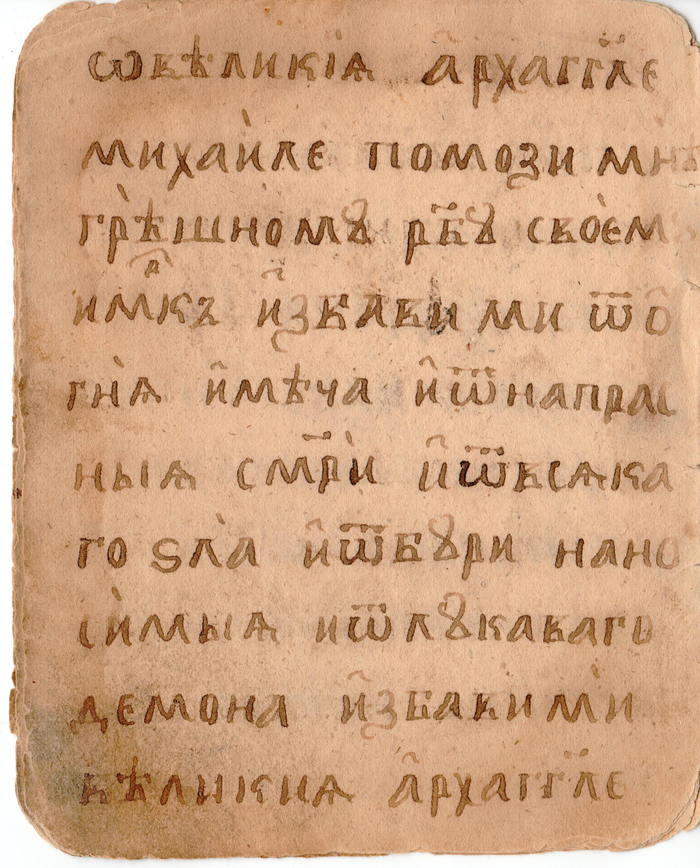 Ѡ вѣликїѧ а҆рхаггл҃е
михаи̇ле помоѕи мнѣ
грѣшномꙋ рб҃ꙋ своемꙋ
имр҃къ и҆збави ми ѿ о҆
гнѧ и҆ мѣча и҆ ѿ напрас
ныѧ смр҃ти и҆ ѿ всѧка
го ѕла и҆ ѿ бꙋри нано
симыѧ и ѿ лꙋкаваго
демона и҆збави ми
вѣликиѧ а҆рхаггл҃е